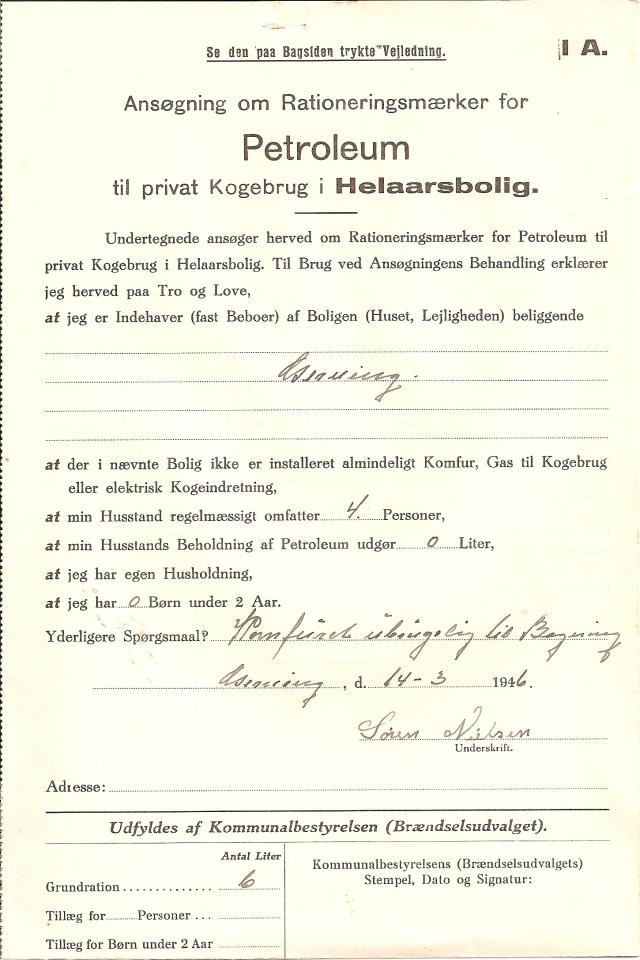 Se den paa Bagsiden trykte Vejledning.
I A.
Ansøgning om Rationeringsmærker for
Petroleum
til privat Kogebrug i Helaarsbolig.
Undertegnede ansøger herved om Rationeringsmærker for Petroleum til
privat Kogebrug i Helaarsbolig. Til Brug ved Ansøgningens Behandling erklærer
jeg herved paa Tro og Love,
at jeg er Indehaver (fast Beboer) af Boligen (Huset, Lejligheden) beliggende
at der i nævnte Bolig ikke er installeret almindeligt Komfur, Gas til Kogebrug
eller elektrisk Kogeindretning,
at min Husstand regelmæssigt omfatter 4. Personer,
at min Husstands Beholdning af Petroleum udgør 0 Liter,
at jeg har egen Husholdning,
at jeg har 0 Børn under 2 Aar.
Yderligere Spørgsmaal? Komfuret ubrugelig til
, d. 14-3 1946.
Søren Nielsen
Underskrift.
Adresse:
Udfyldes af Kommunalbestyrelsen (Brændselsudvalget).
Antal Liter
Grundration 6
Tillæg for Personer
Tillæg for Børn under 2 Aar
Kommunalbestyrelsens (Brændselsudvalgets)
Stempel, Dato og Signatur: